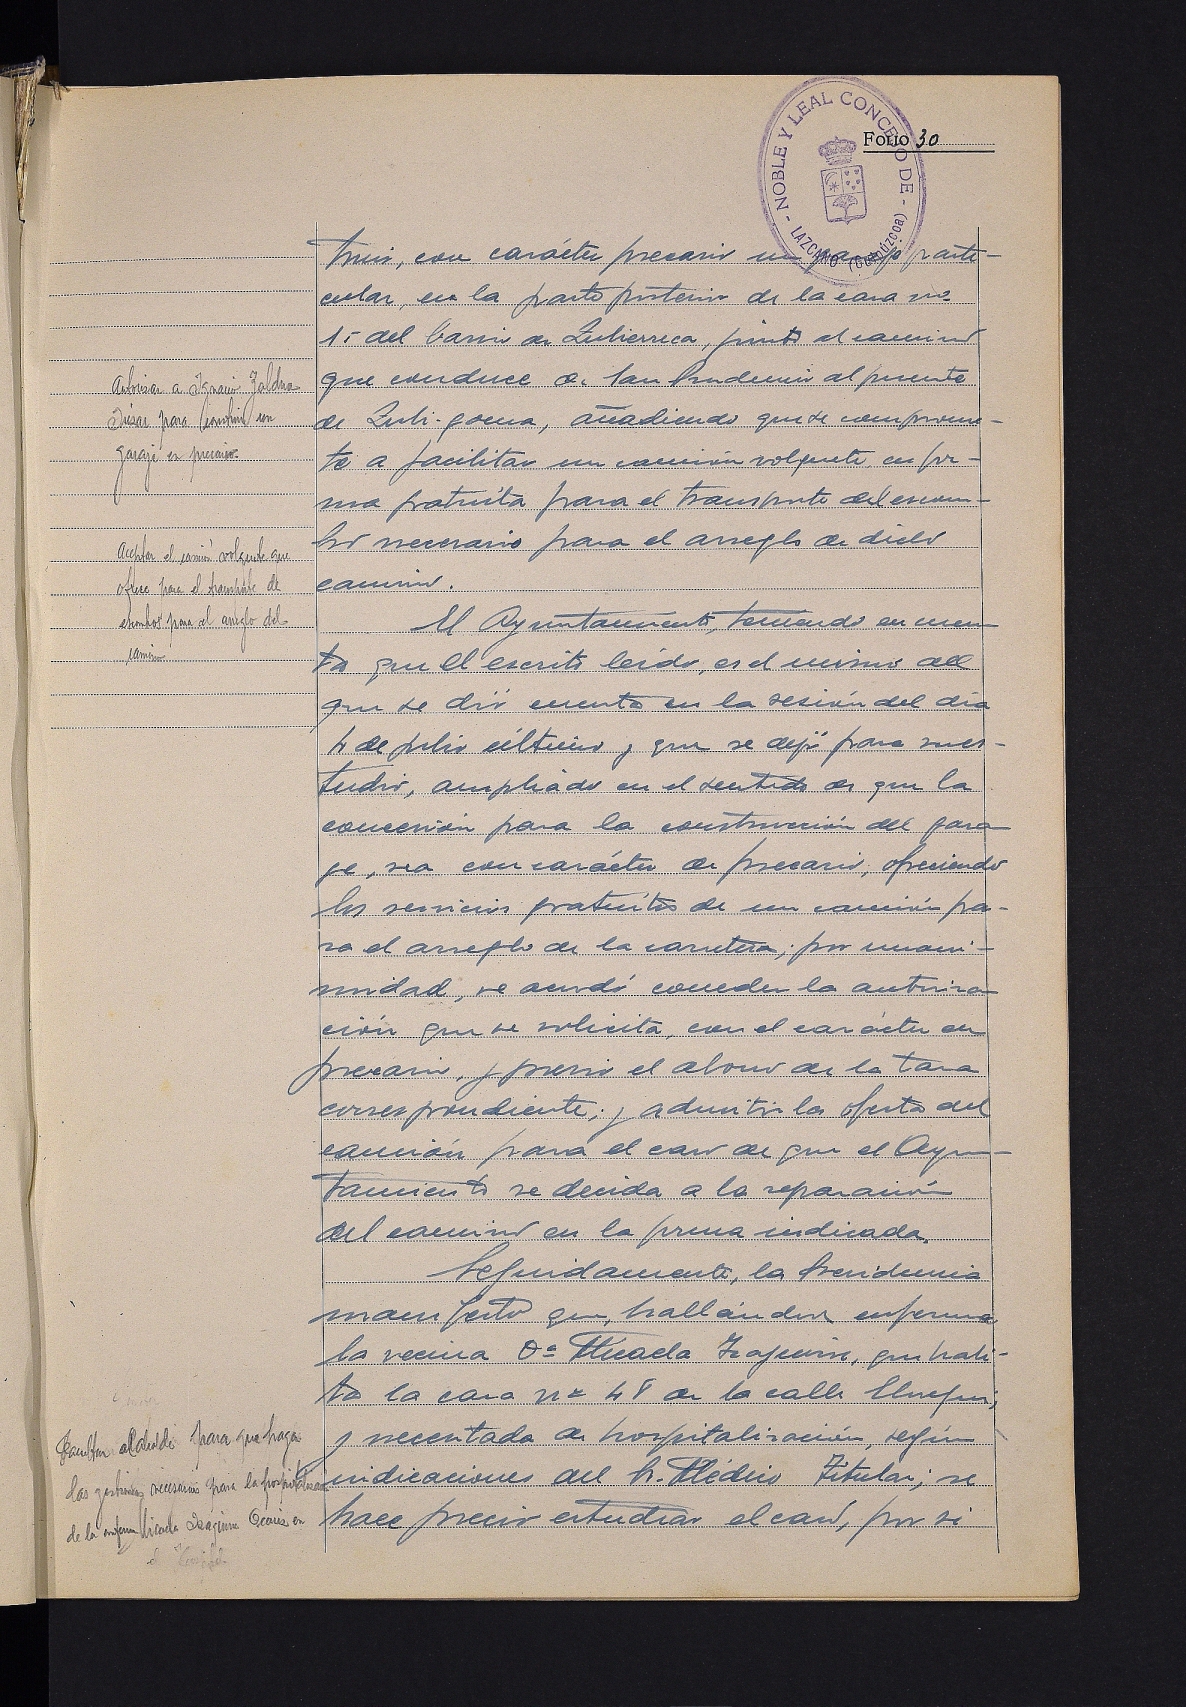 NOBLE Y LEAL CONCEJO DE - LAZCANO (GUIPÚZCOA)
Folio 30
truir, con carácter precario un garaje parti-
cular, en la parte posterior de la casa nº
15 del barrio de Zubierreca, junto al camino
que conduce de San Prudencio al puente
de Zubi-goena, añadiendo que se comprome-
te a facilitar un camión volquete en for-
ma gratuita para el transporte del escom-
bro necesario para el arreglo de dicho
camino.
Autorizar a Ignacio Zaldua
para construir un
garaje en precario.
Aceptar el camión volquete que
ofrece para el transporte de
escombros para el arreglo del
camino
El Ayuntamiento, teniendo en cuen
ta que el escrito leído, es el mismo del
que se dió cuenta en la sesión del día
4 de julio último y que se dejó para su es-
tudio, ampliado en el sentido de que la
concesión para la construcción del gara
ge, sea con carácter de precario, ofreciendo
los servicios gratuitos de un camión pa-
ra el arreglo de la carretera; por unani-
midad, se acordó conceder la autoriza
ción que se solicita, con el carácter en
precario, y previo el abono de la tasa
correspondiente; y admitir la oferta del
camión para el caso de que el Ayun-
tamiento se decida a la reparación
del camino en la forma indicada.
Seguidamente, la Presidencia
manifestó que, hallándose enferma
la vecina Dª Micaela que habi-
ta la casa nº 48 de la calle
y necesitada de hospitalización, según
indicaciones del Sr. Médico Titular; se
hace preciso estudiar el caso, por si
Facultar al Alcalde para que haga
las gestiones necesarias para la hospitalización
de la enferma Micaela en
el